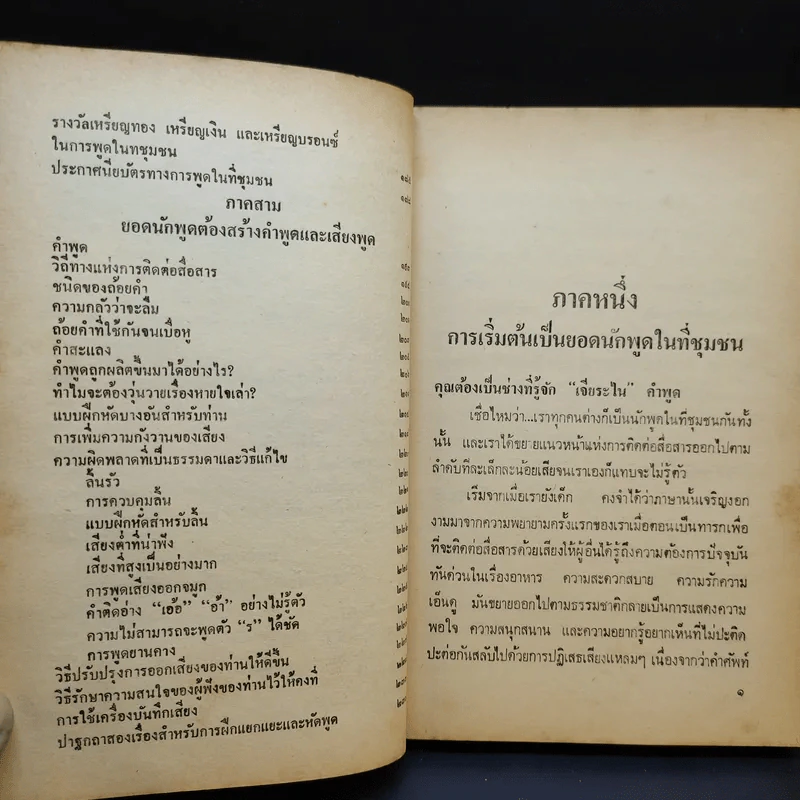 รางวัลเหรียญทอง เหรียญเงิน และเหรียญบรอนซ์
ในการพูดในทชุมชน
ประกาศนียบัตรทางการพูดในที่ชุมชน
ภาคสาม
ยอดนักพูดต้องสร้างคำพูดและเสียงพูด
คำพูด
วิถีทางแห่งการติดต่อสื่อสาร
ชนิดของถ้อยคำ
ความกลัวว่าจะลืม
ถ้อยคำที่ใช้กันจนเบื่อหู
คำสะแลง
คำพูดถูกผลิตขึ้นมาได้อย่างไร?
ทำไมจะต้องวุ่นวายเรื่องหายใจเล่า?
แบบฝึกหัดบางอันสำหรับท่าน
การเพิ่มความกังวานของเสียง
ความผิดพลาดที่เป็นธรรมดาและวิธีแก้ไข
ลิ้นรัว
การควบคุมลิ้น
แบบฝึกหัดสำหรับลิ้น
เสียงต่ำที่น่าฟัง
เสียงที่สูงเป็นอย่างมาก
การพูดเสียงออกจมูก
คำติดอ่าง “เอ้อ” “อ้า” อย่างไม่รู้ตัว
ความไม่สามารถจะพูดตัว “ร” ได้ชัด
การพูดยานคาง
วิธีปรับปรุงการออกเสียงของท่านให้ดีขึ้น
วิธีรักษาความสนใจของผู้ฟังของท่านไว้ให้คงที่
การใช้เครื่องบันทึกเสียง
ปาฐกถาสองเรื่องสำหรับการฝึกแยกแยะและหัดพูด
ภาคหนึ่ง
การเริ่มต้นเป็นยอดนักพูดในที่ชุมชน
คุณต้องเป็นช่างที่รู้จัก “เจียระไน” คำพูด
เชื่อไหมว่า...เราทุกคนต่างก็เป็นนักพูดในที่ชุมชนกันทั้ง
นั้น และเราได้ขยายแนวหน้าแห่งการติดต่อสื่อสารออกไปตาม
ลำดับทีละเล็กละน้อยเสียจนเราเองก็แทบจะไม่รู้ตัว
เริ่มจากเมื่อเรายังเด็ก คงจำได้ว่าภาษานั้นเจริญงอก
งามมาจากความพยายามครั้งแรกของเราเมื่อตอนเป็นทารกเพื่อ
ที่จะติดต่อสื่อสารด้วยเสียงให้ผู้อื่นได้รู้ถึงความต้องการปัจจุบัน
ทันด่วนในเรื่องอาหาร ความสะดวกสบาย ความรักความ
เอ็นดู มันขยายออกไปตามธรรมชาติกลายเป็นการแสดงความ
พอใจ ความสนุกสนาน และความอยากรู้อยากเห็นที่ไม่ปะติด
ปะต่อกันสลับไปด้วยการปฏิเสธเสียงแหลมๆ เนื่องจากว่าคำศัพท์
๑